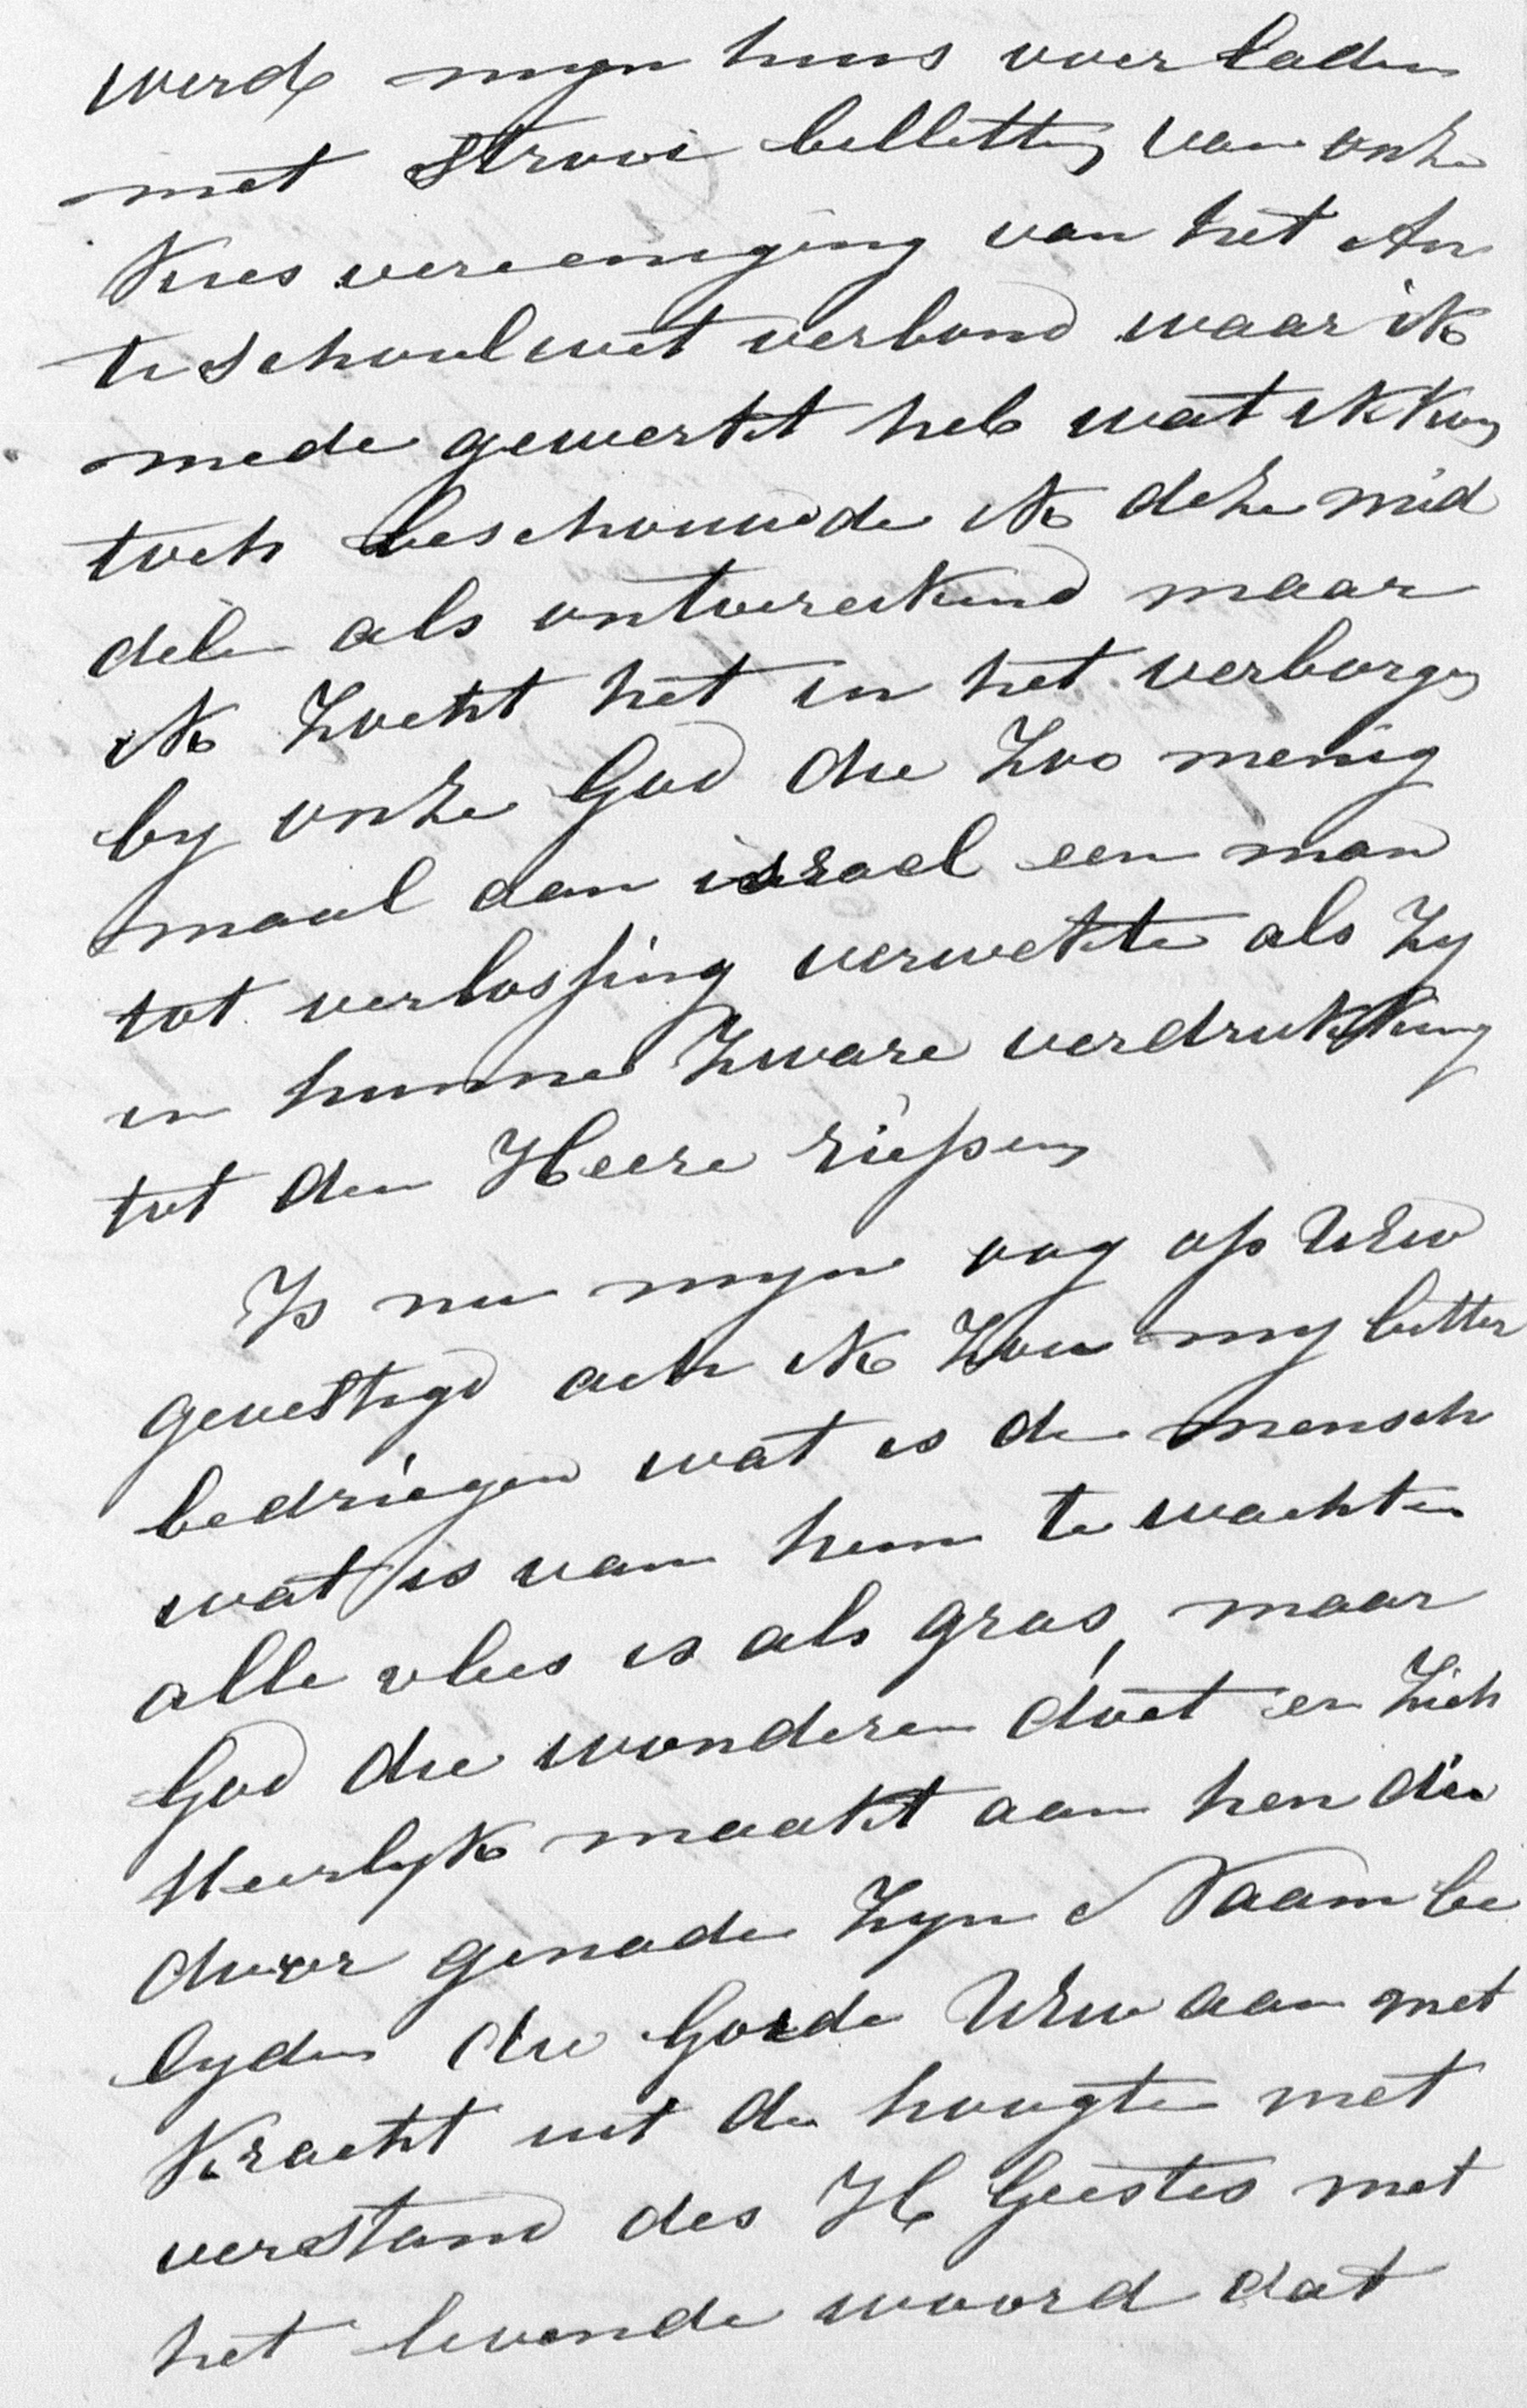 werd myn huis voerladen
met strooi billetten van onze
Kies vereeniging van het An
ti schoolwet verbond waar ik
mede gewerkt heb wat ik kon
toch beschouwde ik deze mid
delen als ontoereikend maar
ik zocht het in het verborgen
by onze God die zoo menig
maal aan israel een man
tot verlossing verwekte als zy
in hunne zware verdrukking
tot den Heere riepen
Is nu myne oog op UEw
gevestigd ach ik zou my bitter
bedriegen wat is de mensch
wat is van hem te wachten
alle vlees is als gras, maar
God die wonderen doet en zich
Heerlyk maakt aan hen die
door genade zyn Naam be
lyden die Gorde UEw aan met
Kracht uit de hoogte met
verstand des H Geestes met
het levende woord dat